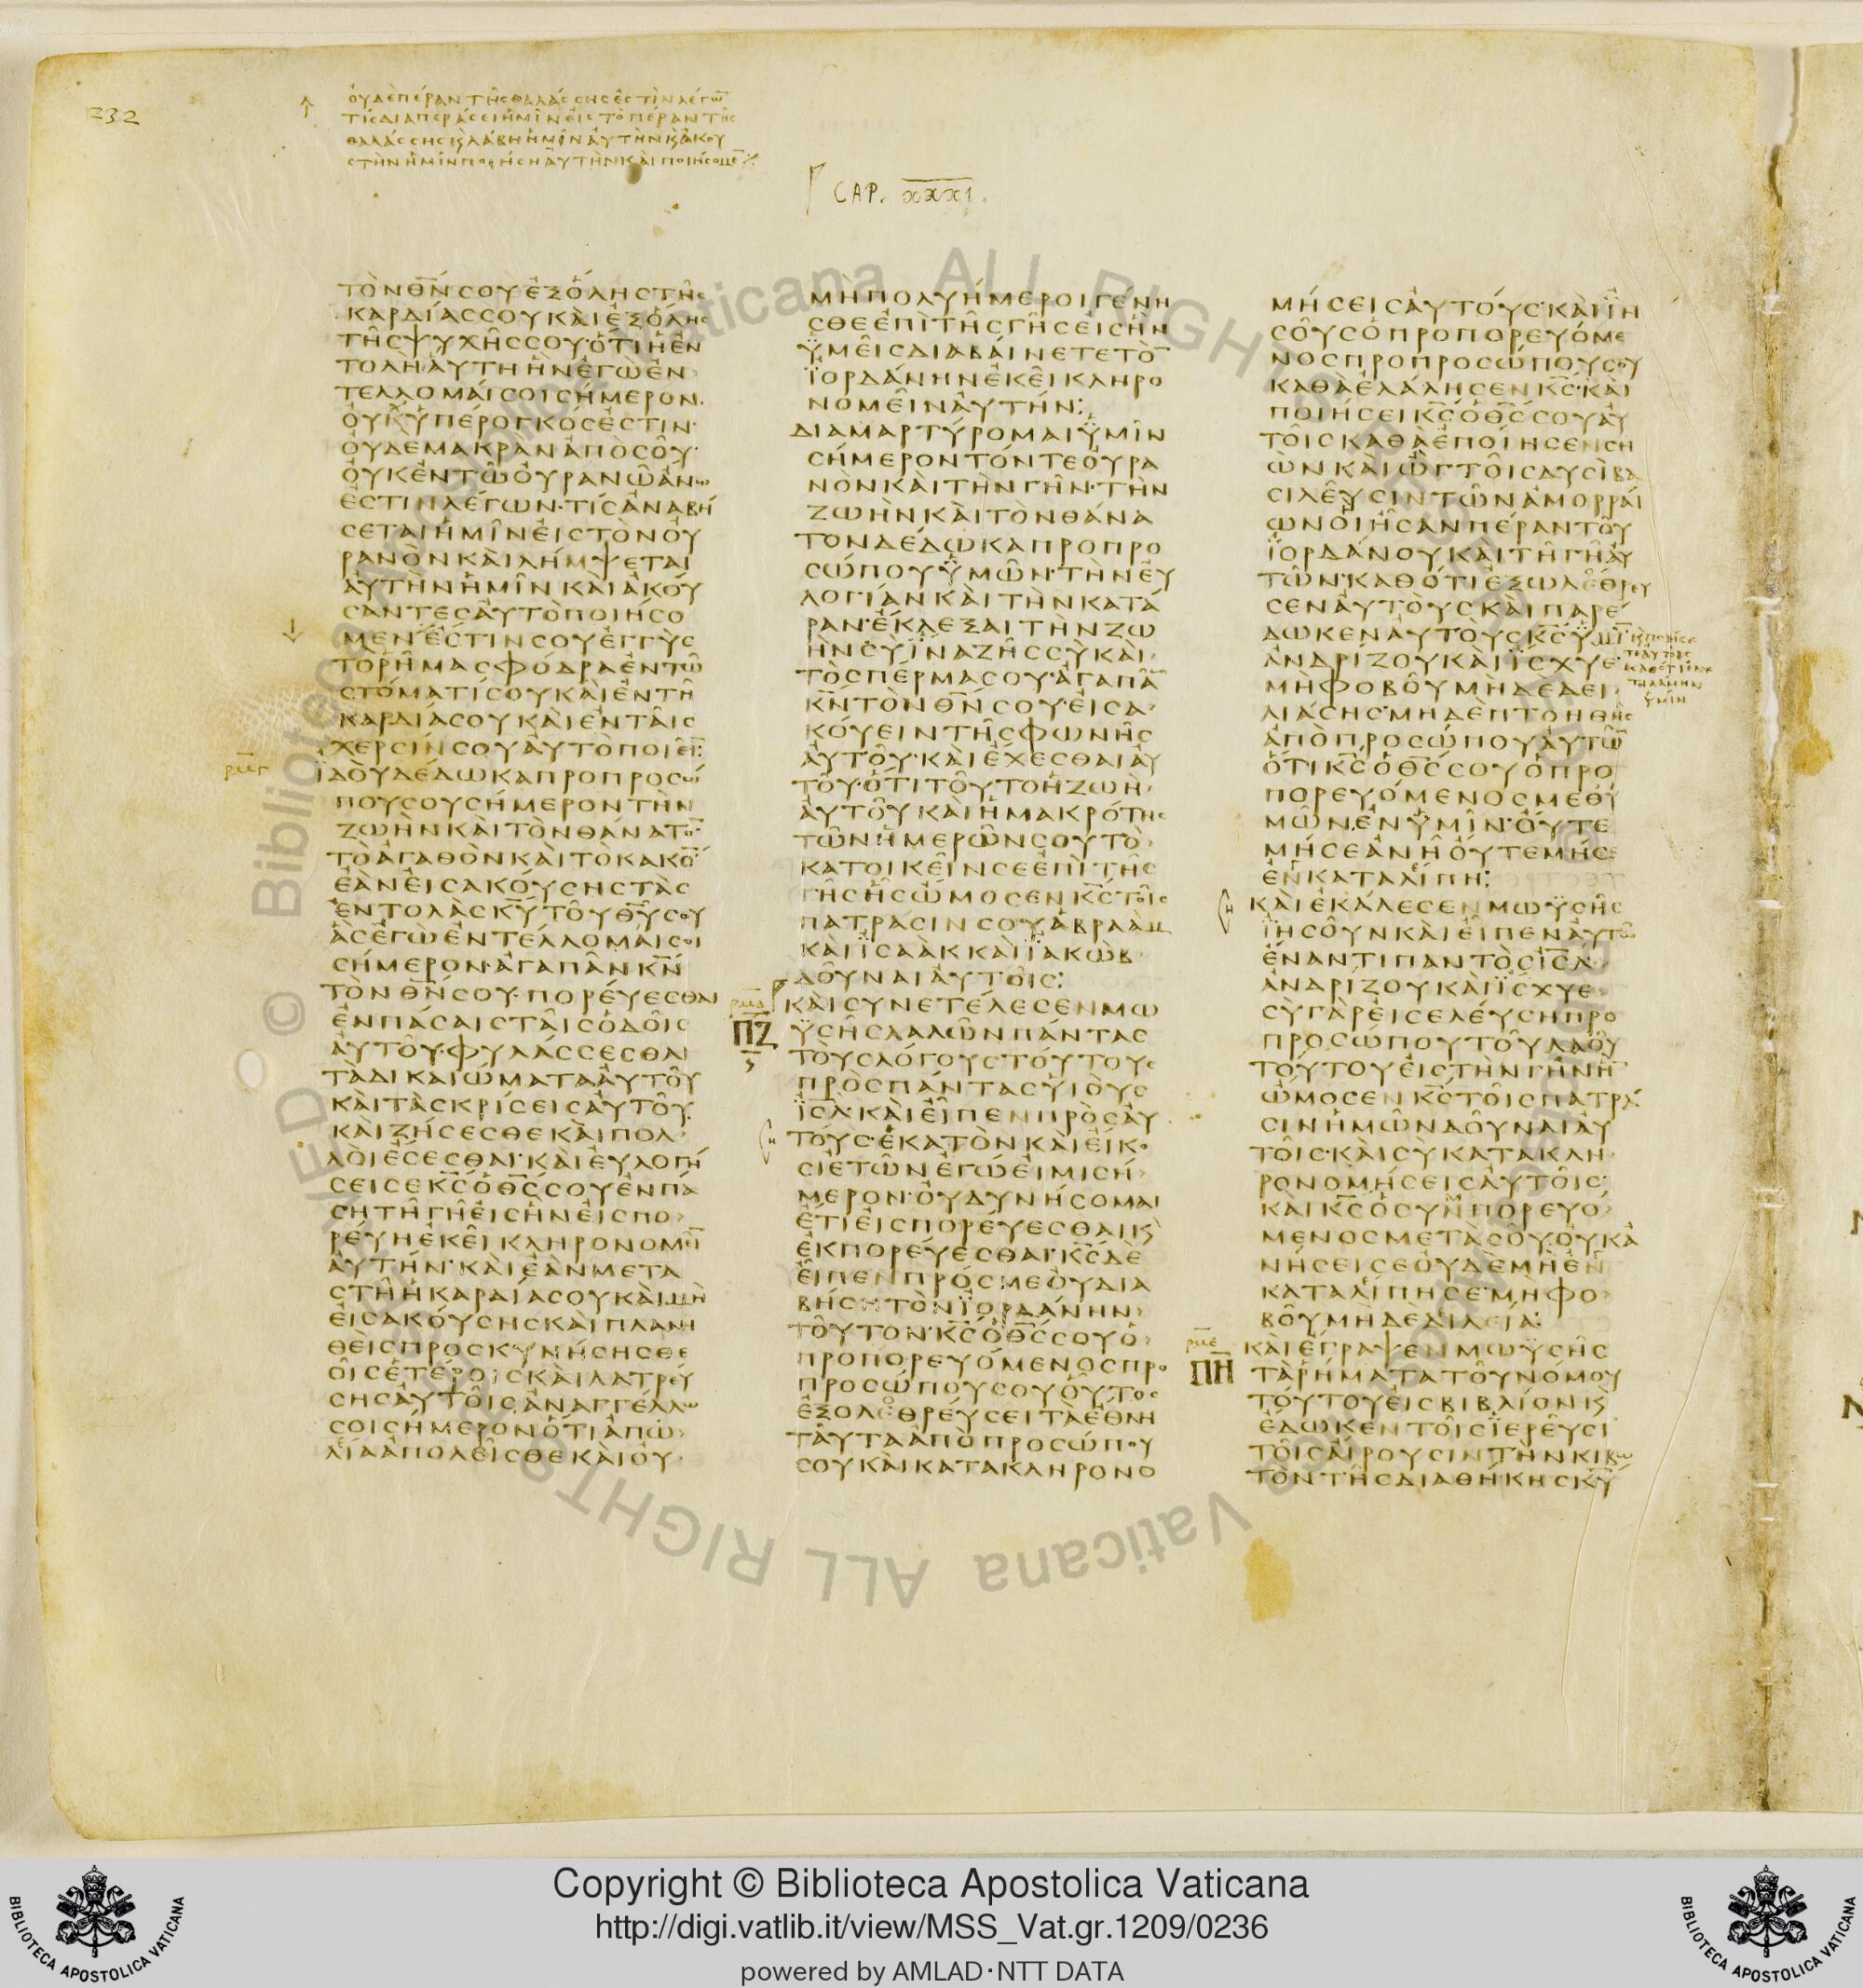 232
ὀυδὲπέραντῆςθαλάσσηςἐστὶνλέγω̅
τίςδιαπεράσειἡμῖνεἰςτὸπέραντῆς
θαλάσσηςκ̀λάβηἡμῖναὐτὴνκ̀ἀκου
στὴνἡμῖνποιήσηαὐτὴνκαὶποιήσομε̅
CAP. XXXI.
ΤῸΝΘ̅Ν̅ΣΟΥἘΞὍΛΗΣΤΗ͂Σ
ΚΑΡΔΊΑΣΣΟΥΚΑῚἘΞὍΛΗΣ
ΤΗ͂ΣΨΥΧΗ͂ΣΣΟΥ·ὍΤΙἩἘΝ
ΤΟΛῊΑὝΤΗἫΝἘΓῺἘΝ
ΤΕΛΛΟΜΑΊΣΟΙΣΉΜΕΡΟΝ·
ΟΥ̓ΧὙΠΈΡΟΓΚΌΣἘΣΤΙΝ·
ΟΥ̓ΔΕΜΑΚΡᾺΝἈΠῸΣΟΥ͂·
ΟΥ̓ΚἘΝΤΩ͂ΟΥ̓ΡΑΝΩ͂ἌΝΩ
ἘΣΤῚΝΛΈΓΩΝ·ΤΊΣἈΝΑΒΉ
ΣΕΤΑΙἩΜΙ͂ΝΕἸΣΤῸΝΟΥ̓
ΡΑΝῸΝΚΑῚΛΉΜΨΕΤΑΙ
ΑΥ̓ΤῊΝἩΜΙ͂ΝΚΑῚἈΚΟΎ
ΣΑΝΤΕΣΑΥ̓ΤῸΠΟΙΉΣΟ
ΜΕΝ·ἘΣΤΙΝΣΟΥἘΓΓῪΣ
ΤΟΡΗ͂ΜΑΣΦΌΔΡΑἘΝΤΩ͂
ΣΤΌΜΑΤΊΣΟΥΚΑῚἘΝΤΗ͂
ΚΑΡΔΊΑΣΟΥΚΑῚἘΝΤΑΙ͂Σ
ΧΕΡΣΊΝΣΟΥΑΥ̓ΤῸΠΟΙΕΙ͂̅:
ἸΔΟῪΔΈΔΩΚΑΠΡΟΠΡΟΣΏ
ΠΟΥΣΟΥΣΉΜΕΡΟΝΤῊΝ
ΖΩῊΝΚΑῚΤῸΝΘΆΝΑΤΟ̅·
ΤῸἈΓΑΘῸΝΚΑῚΤῸΚΑΚΌ̅
ἘᾺΝΕἸΣΑΚΟΎΣΗΣΤᾺΣ
ἘΝΤΟΛᾺΣΚ̅Υ̅ΤΟΥ͂Θ̅Υ̅ΣΟΥ
ἋΣἘΓῺἘΝΤΈΛΛΟΜΑΊΣΟΙ
ΣΉΜΕΡΟΝ·ἈΓΑΠΑ͂ΝΚ̅Ν̅
ΤῸΝΘ̅Ν̅ΣΟΥ·ΠΟΡΕΎΕΣΘΑΙ
ἘΝΠΆΣΑΙΣΤΑΙ͂ΣὉΔΟΙ͂Σ
ΑΥ̓ΤΟΥ͂·ΦΥΛΆΣΣΕΣΘΑΙ
ΤᾺΔΙΚΑΙΏΜΑΤΑΑΥ̓ΤΟΥ͂
ΚΑῚΤᾺΣΚΡΊΣΕΙΣΑΥ̓ΤΟΥ͂·
ΚΑῚΖΉΣΕΣΘΕΚΑῚΠΟΛ
ΛΟῚἜΣΕΣΘΑΙ·ΚΑῚΕΥ̓ΛΟΓΉ
ΣΕΙΣΕΚ̅Σ̅ὉΘ̅Σ̅ΣΟΥἘΝΠΑ
ΣΗΤΗ͂ΓΗ͂ΕἸΣἫΝΕἸΣΠΟ
ΡΕΎΗἘΚΕΙ͂ΚΛΗΡΟΝΟΜΗ͂̅
ΑΥ̓ΤΉΝ·ΚΑῚἘᾺΝΜΕΤΑ
ΣΤΗ͂ἩΚΑΡΔΊΑΣΟΥΚΑῚΜῊ
ΕἸΣΑΚΟΎΣΗΣΚΑῚΠΛΑΝΗ
ΘΕῚΣΠΡΟΣΚΥΝΉΣΗΣΘΕ
ΟΙ͂ΣἙΤΈΡΟΙΣΚΑῚΛΑΤΡΕΎ
ΣΗΣΑΥ̓ΤΟΙ͂ΣἈΝΑΓΓΈΛΛΩ
ΣΟΙΣΉΜΕΡΟΝὍΤΙἈΠΩ
ΛΊΑἈΠΟΛΕΙ͂ΣΘΕΚΑῚΟΥ̓
ΜῊΠΟΛΥΉΜΕΡΟΙΓΈΝΗ
ΣΘΕἘΠῚΤΗ͂ΣΓΗ͂ΣΕἸΣἫΝ
ΫΜΕΙ͂ΣΔΙΑΒΑΊΝΕΤΕΤῸ̅
ΪΟΡΔΆΝΗΝἘΚΕΙ͂ΚΛΗΡΟ
ΝΟΜΕΙ͂ΝΑΥ̓ΤΉΝ:
ΔΙΑΜΑΡΤΎΡΟΜΑΙΫΜΙ͂Ν
ΣΉΜΕΡΟΝΤΌΝΤΕΟΥ̓ΡΑ
ΝῸΝΚΑῚΤῊΝΓΗ͂Ν·ΤῊΝ
ΖΩῊΝΚΑῚΤῸΝΘΆΝΑ
ΤΟΝΔΈΔΩΚΑΠΡΟΠΡΟ
ΣΏΠΟΥΫΜΩ͂Ν·ΤῊΝΕΥ̓
ΛΟΓΊΑΝΚΑῚΤῊΝΚΑΤΆ
ΡΑΝ·ἘΚΛΕΞΑΙΤῊΝΖΩ
ῊΝΣῪΪΝΑΖΗ͂ΣΣῪΚΑῚ
ΤῸΣΠΈΡΜΑΣΟΥ·ἈΓΑΠΑ͂̅
Κ̅Ν̅ΤῸΝΘ̅Ν̅ΣΟΥ·ΕἸΣΑ
ΚΟΎΕΙΝΤΗ͂ΣΦΩΝΗ͂Σ
ΑΥ̓ΤΟΥ͂·ΚΑῚἜΧΕΣΘΑΙΑΥ̓
ΤΟΥ͂·ὍΤΙΤΟΥ͂ΤΟἩΖΩῊ
ΑΥ̓ΤΟΥ͂ΚΑῚἩΜΑΚΡΌΤΗΣ
ΤΩ͂ΝἩΜΕΡΩ͂ΝΣΟΥΤῸ
ΚΑΤΟΙΚΕΙ͂ΝΣΕἘΠῚΤΗ͂Σ
ΓΗ͂ΣΗ͂ΣὬΜΟΣΕΝΚ̅Σ̅ΤΟΙ͂Σ
ΠΑΤΡΆΣΙΝΣΟΥἈΒΡΑᾺΜ
ΚΑῚΪΣΑᾺΚΚΑῚΪΑΚῺΒ
ΔΟΥ͂ΝΑΙΑΥ̓ΤΟΙ͂Σ:
ΚΑῚΣΥΝΕΤΈΛΕΣΕΝΜΩ
ΠΖ
ΫΣΗ͂ΣΛΑΛΩ͂ΝΠΆΝΤΑΣ
ΤΟῪΣΛΌΓΟΥΣΤΟΎΤΟΥΣ
ΠΡῸΣΠΆΝΤΑΣΥἹΟῪΣ
Ϊ̅Σ̅Λ̅·ΚΑῚΕΙ͂ΠΕΝΠΡῸΣΑΥ̓
ΤΟΎΣ·ἙΚΑΤῸΝΚΑῚΕἼΚΟ
ΣΙἘΤΩ͂ΝἘΓΏΕἸΜΙΣΉ
ΜΕΡΟΝ·ΟΥ̓ΔΥΝΉΣΟΜΑΙ
ἜΤΙΕἸΣΠΟΡΕΎΕΣΘΑΙΚ̀
ἘΚΠΟΡΕΎΕΣΘΑΙ·Κ̅Σ̅ΔῈ
ΕΙ͂ΠΕΝΠΡΌΣΜΕΟΥ̓ΔΙΑ
ΒΉΣΗΤῸΝΪΟΡΔΆΝΗΝ
ΤΟΥ͂ΤΟΝ·Κ̅Σ̅ὉΘ̅Σ̅ΣΟΥὉ
ΠΡΟΠΟΡΕΥΌΜΕΝΟΣΠΡΟ
ΠΡΟΣΏΠΟΥΣΟΥΟΥ͂ΤΟΣ
ἘΞΟΛΕΘΡΕΎΣΕΙΤᾺἜΘΝΗ
ΤΑΥ͂ΤΑἈΠῸΠΡΟΣΏΠΟΥ
ΣΟΥΚΑῚΚΑΤΑΚΛΗΡΟΝΟ
ΜΉΣΕΙΣΑΥ̓ΤΟΎΣ·ΚΑῚΪΗ
ΣΟΥ͂ΣὉΠΡΟΠΟΡΕΥΌΜΕ
ΝΟΣΠΡΟΠΡΟΣΏΠΟΥΣΟΥ
ΚΑΘᾺἘΛΆΛΗΣΕΝΚ̅Σ̅·ΚΑῚ
ΠΟΙΉΣΕΙΚ̅Σ̅ὉΘ̅Σ̅ΣΟΥΑΥ̓
ΤΟΙ͂ΣΚΑΘᾺἘΠΟΊΗΣΕΝΣΗ
ῺΝΚΑῚῺΓΤΟΙ͂ΣΔΥΣῚΒΑ
ΣΙΛΕΥ͂ΣΙΝΤΩ͂ΝἈΜΟΡΡΑΊ
ΩΝΟἻΗ͂ΣΑΝΠΈΡΑΝΤΟΥ͂
ΪΟΡΔΆΝΟΥΚΑῚΤΗ͂ΓΗ͂ΑΥ̓
ΤΩ͂Ν·ΚΑΘΌΤΙἘΞΩΛΕΘΡΕΥ
ΣΕΝΑΥ̓ΤΟῪΣΚΑῚΠΑΡΈ
ΔΩΚΕΝΑΥ̓ΤΟῪΣΚ̅Σ̅ΫΜΙ͂̅·
κ̀ποιήσε
τεαὐτοῖς
καθότιἐνε
τειλάμην
ὑμῖν
ἈΝΔΡΊΖΟΥΚΑῚΪΣΧΥΕ
ΜῊΦΟΒΟΥ͂ΜῊΔῈΔΕΙ
ΛΙΆΣΗΣ·ΜΗΔῈΠΤΟΗΘΗ͂Σ
ἈΠῸΠΡΟΣΏΠΟΥΑΥ̓ΤΩ͂̅
ὍΤΙΚ̅Σ̅ὉΘ̅Σ̅ΣΟΥὉΠΡΟ
ΠΟΡΕΥΌΜΕΝΟΣΜΕΘΫ
ΜΩ͂ΝἘΝΫΜΙ͂Ν·ΟΎΤΕ
ΜΉΣΕἈΝΗ͂ΟΎΤΕΜΉΣΕ
ἘΝΚΑΤΑΛΊΠΗ:
ΚΑῚἘΚΆΛΕΣΕΝΜΩΫΣΗ͂Σ
ΪΗΣΟΥ͂ΝΚΑῚΕΙ͂ΠΕΝΑΥ̓ΤΩ͂
ἜΝΑΝΤΙΠΑΝΤῸΣΪ̅Σ̅Λ̅
ἈΝΔΡΊΖΟΥΚΑῚΪΣΧΥΕ
ΣῪΓᾺΡΕἸΣΕΛΕΎΣΗΠΡΟ
ΠΡΟΣΏΠΟΥΤΟΥ͂ΛΑΟΥ͂
ΤΟΎΤΟΥΕἸΣΤῊΝΓΗ͂ΝἫ̅
ὬΜΟΣΕΝΚ̅Σ̅ΤΟΙ͂ΣΠΑΤΡΆ
ΣΙΝἩΜΩ͂ΝΔΟΥ͂ΝΑΙΑΥ̓
ΤΟΙ͂Σ·ΚΑῚΣῪΚΑΤΑΚΛΗ
ΡΟΝΟΜΉΣΕΙΣΑΥ̓ΤΟΙ͂Σ·
ΚΑῚΚ̅Σ̅ὉΣΥΜΠΟΡΕΥΌ
ΜΕΝΟΣΜΕΤᾺΣΟΥ͂ΟΥ̓ΚΑ
ΝΉΣΕΙΣΕΟΥ̓ΔῈΜῊἘΝ
ΚΑΤΑΛΊΠΗΣΕ·ΜῊΦΟ
ΒΟΥ͂ΜΗΔῈΔΙΛΕΊΑ:
ΚΑῚἜΓΡΑΨΕΝΜΩΫΣΗ͂Σ
ΠΗ
ΤᾺΡΉΜΑΤΑΤΟΥ͂ΝΌΜΟΥ
ΤΟΎΤΟΥΕἸΣΒΙΒΛΊΟΝΚ̀
ἜΔΩΚΕΝΤΟΙ͂ΣΪΕΡΕΥ͂ΣΙ
ΤΟΙ͂ΣΑἼΡΟΥΣΙΝΤῊΝΚΙΒΩ
ΤῸΝΤΗ͂ΣΔΙΑΘΉΚΗΣΚ̅Υ̅
© Biblioteca Vaticana ALL RIGHTS
Copyright © Biblioteca Apostolica Vaticana
http://digi.vatlib.it/view/MSS_Vat.gr.1209/0236
powered by AMLAD·NTT DATA
BIBLIOTECA APOSTOLICA VATICANA
BIBLIOTECA APOSTOLICA VATICANA